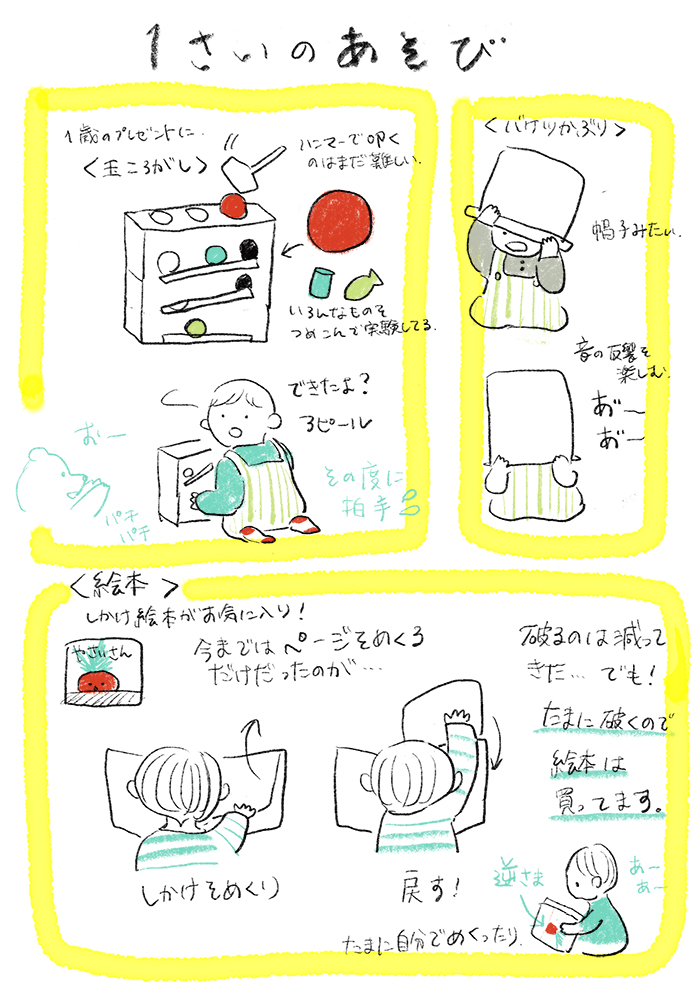 1さいのあそび
1歳のプレゼントに.
<玉ころがし>
ハンマーで叩く
のはまだ難しい.
いろんなものを
つめこんで実験してる.
できたよ?
アピール
おー
パチ
パチ
その度に
拍手
<バケツかぶり>
帽子みたい.
音の反響を
楽しむ.
あ゛ー
あ゛ー
<絵本>
しかけ絵本がお気に入り!
やさいさん
今まではページをめくる
だけだったのが…
しかけをめくり
戻す!
破るのは減って
きた…でも!
たまに破くので
絵本は
買ってます。
逆さま
あー
あー
たまに自分でめくったり.